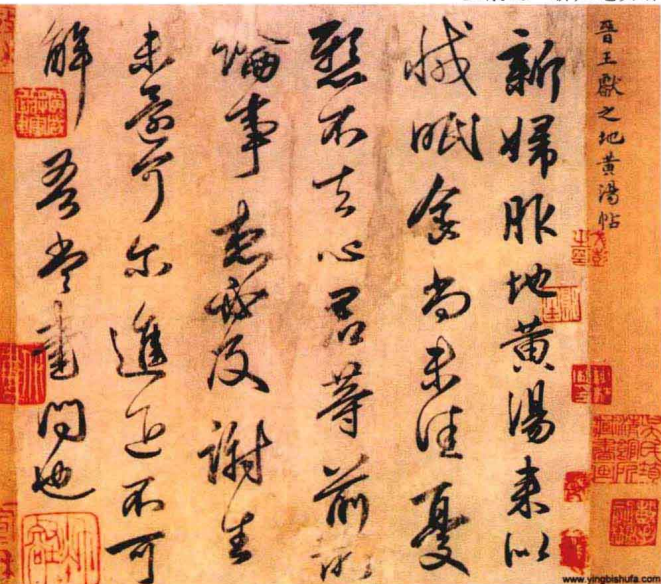 晋王獻之地黄湯帖
新婦服地黄湯來似
減眠食尚未佳憂
懸不去心君等前所
論事想必及謝生
未還可爾進退不可
解吾當書問也
www.yingbishufa.com